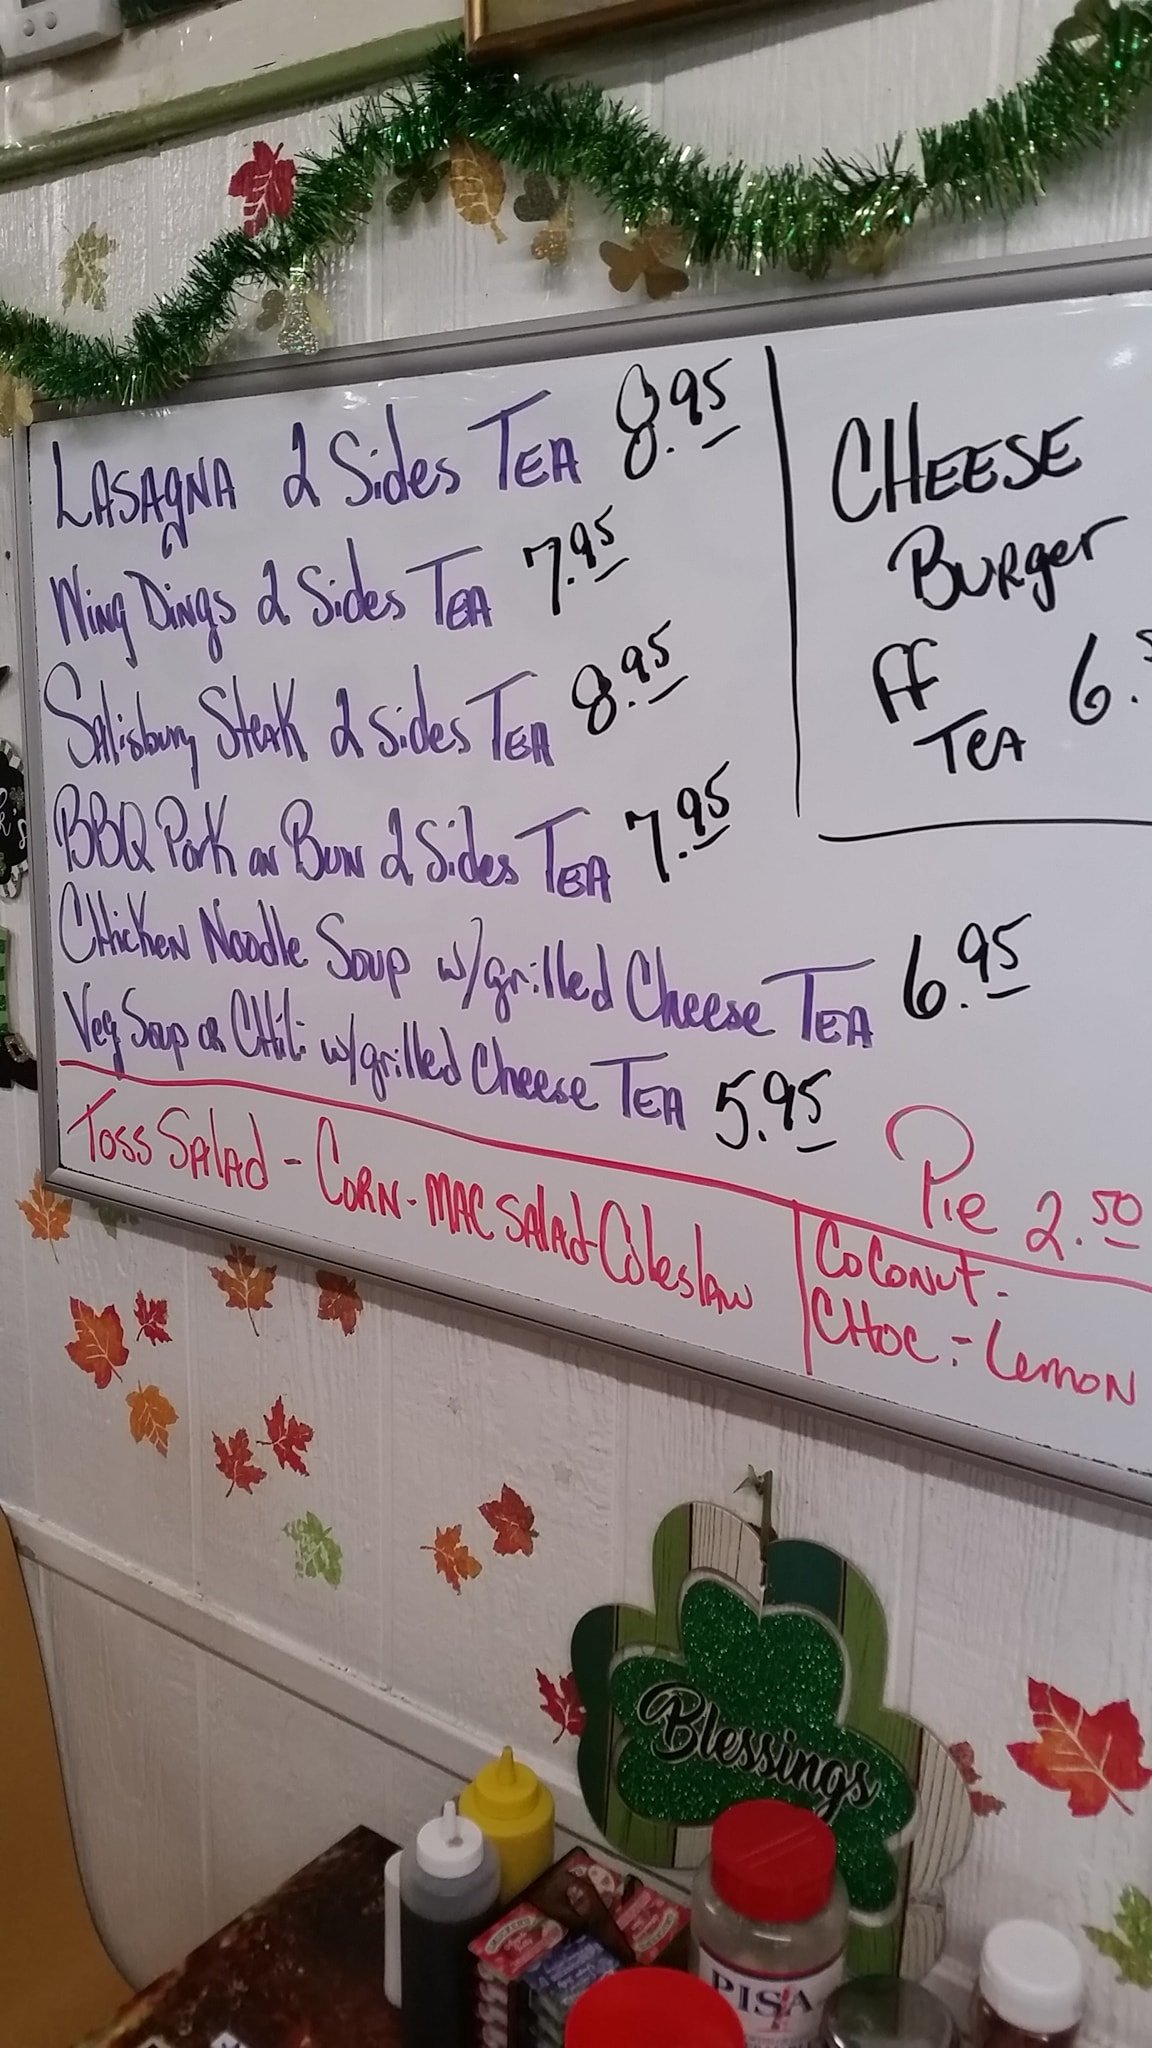 LASAgNA 2 Sides TEA 8.95
Wing Dings 2 Sides TEA 7.95
Salisbury Steak 2 Sides TEA 8.95
BBQ Pork on Bun 2 Sides TEA 7.95
Chicken Noodle Soup w/grilled Cheese TEA 6.95
Veg Soup or Chili w/grilled Cheese TEA 5.95
CHEESE
Burger
ff 6.
TEA
Toss Salad - Corn - MAC Salad - Coleslaw
Pie 2.50
Coconut -
CHOC. - Lemon
Blessings
PISA